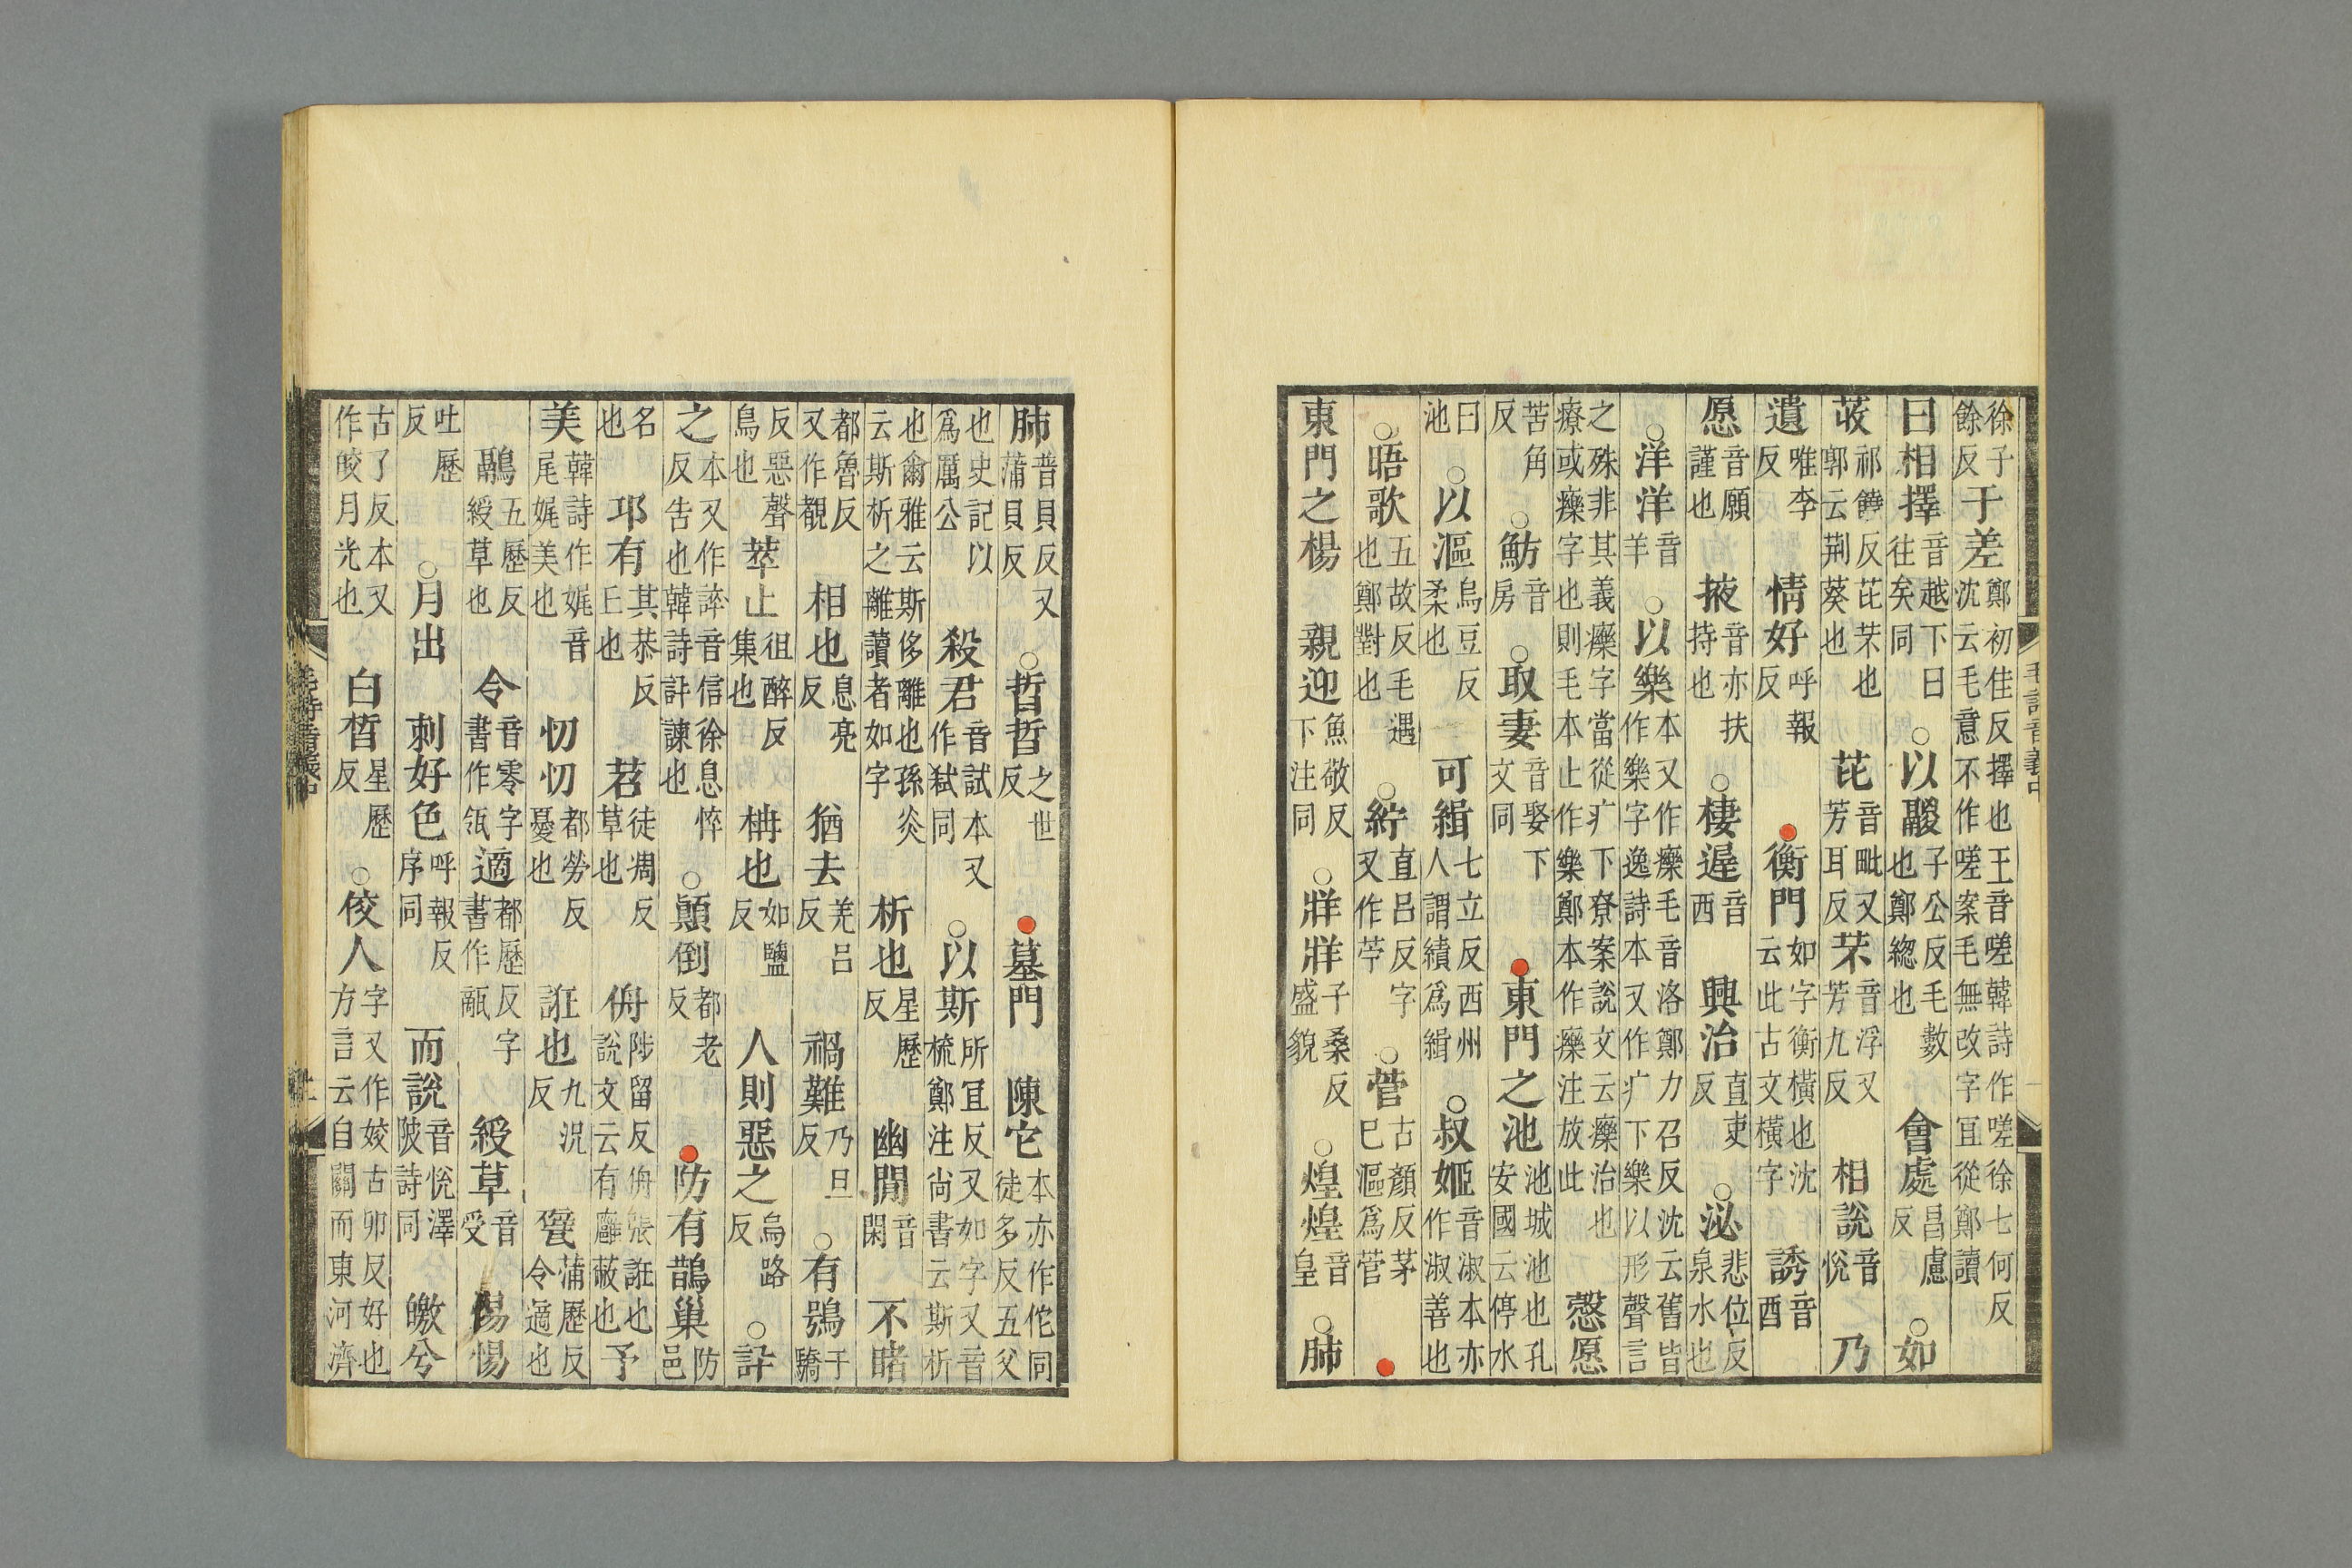 徐子餘反于差鄭初佳反擇也王音嗟韓詩作嗟徐七何反沈云毛意不作嗟案毛無改字宜從鄭讀
曰相擇音越下曰往矣同○以鬷子公反毛數也鄭緫也會處昌慮反○如
荍祁饒反芘芣也郭云荆葵也芘音毗又芳耳反芣音浮又芳九反相說音悅乃
遺唯季反情好呼報反衡門如字衡橫也沈云此古文橫字誘音酉
愿音願謹也掖音亦扶持也○棲遟音西興治直吏反○泌悲位反泉水也
○洋洋音羊○以樂本又作𤻲毛音洛鄭力召反沈云舊皆作樂字逸詩本又作疒下樂以形聲言
之殊非其義𤻲字當從疒下尞案說文云𤻲治也療或𤻲字也則毛本止作樂鄭本作𤻲注放此慤愿
苦角反○魴音房○取妻音娶下文同東門之池池城池也孔安國云停水
曰池○以漚烏豆反柔也可緝七立反西州人謂績爲緝○叔姬音淑本亦作淑善也
○晤歌五故反毛遇也鄭對也○紵直呂反字又作苧○菅古顏反茅巳漚爲菅
東門之楊親迎魚敬反下注同○牂牂子桑反盛貌○煌煌音皇○肺
肺普貝反又蒲貝反○晢晢之世反墓門陳它本亦作佗同徒多反五父
也史記以爲厲公殺君音試本又作弑同○以斯所宜反又如字又音梳鄭注尙書云斯析
也爾雅云斯侈離也孫炎云斯析之離讀者如字析也星歷反幽閒音閑不睹
都魯反又作覩相也息亮反猶去羌呂反禍難乃旦反○有鴞于驕
反惡聲鳥也萃止徂醉反集也枏也如鹽反人則惡之烏路反○訐
之本又作誶音信徐息悴反告也韓詩訐諫也○顚倒都老反防有鵲巢防邑
名也邛有其恭反丘也苕徒凋反草也侜陟留反侜張誑也說文云有廱蔽也予
美韓詩作娓音尾娓美也忉忉都勞反憂也誑也九況反甓蒲歷反令適也
鷊五歷反綬草也令音零字書作瓴適都歷反字書作㼾綬草音受惕惕
吐歷反○月出刺好色呼報反序同而說音悅澤陂詩同皦兮
古了反本又作皎月光也白皙星歷反○佼人字又作姣古卯反好也方言云自關而東河濟
毛詩音義中